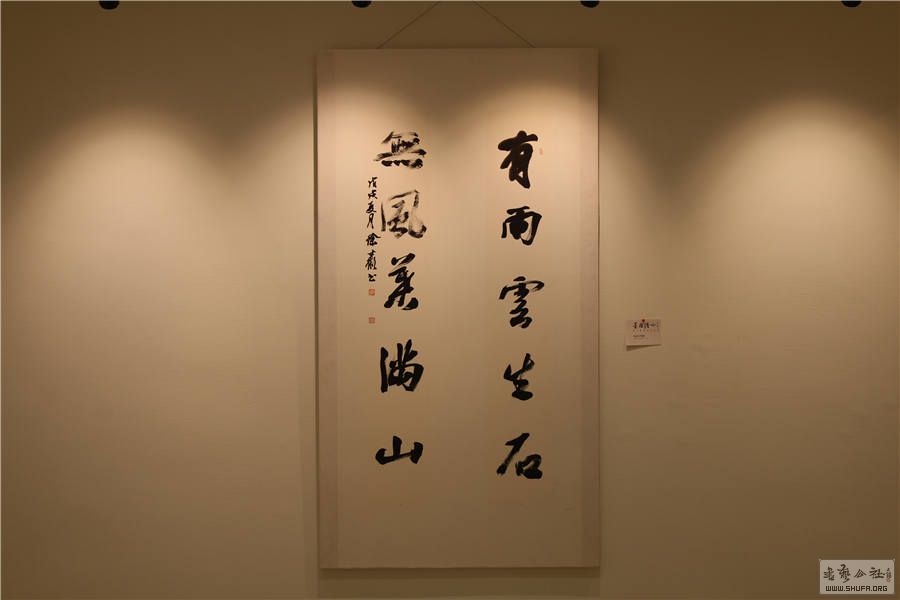 有雨雲生石
無風葉滿山
戊戌夏月徐
書
WWW.SHUFA.ORG